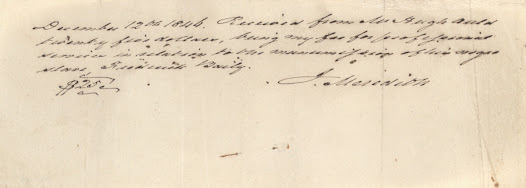 December 12th 1846. Received from Mr Hugh Auld
twenty five dollars, being my fee for professional
service in relation to the manumission of his negro
slave, Frederick Baily.
$25. J. Meredith